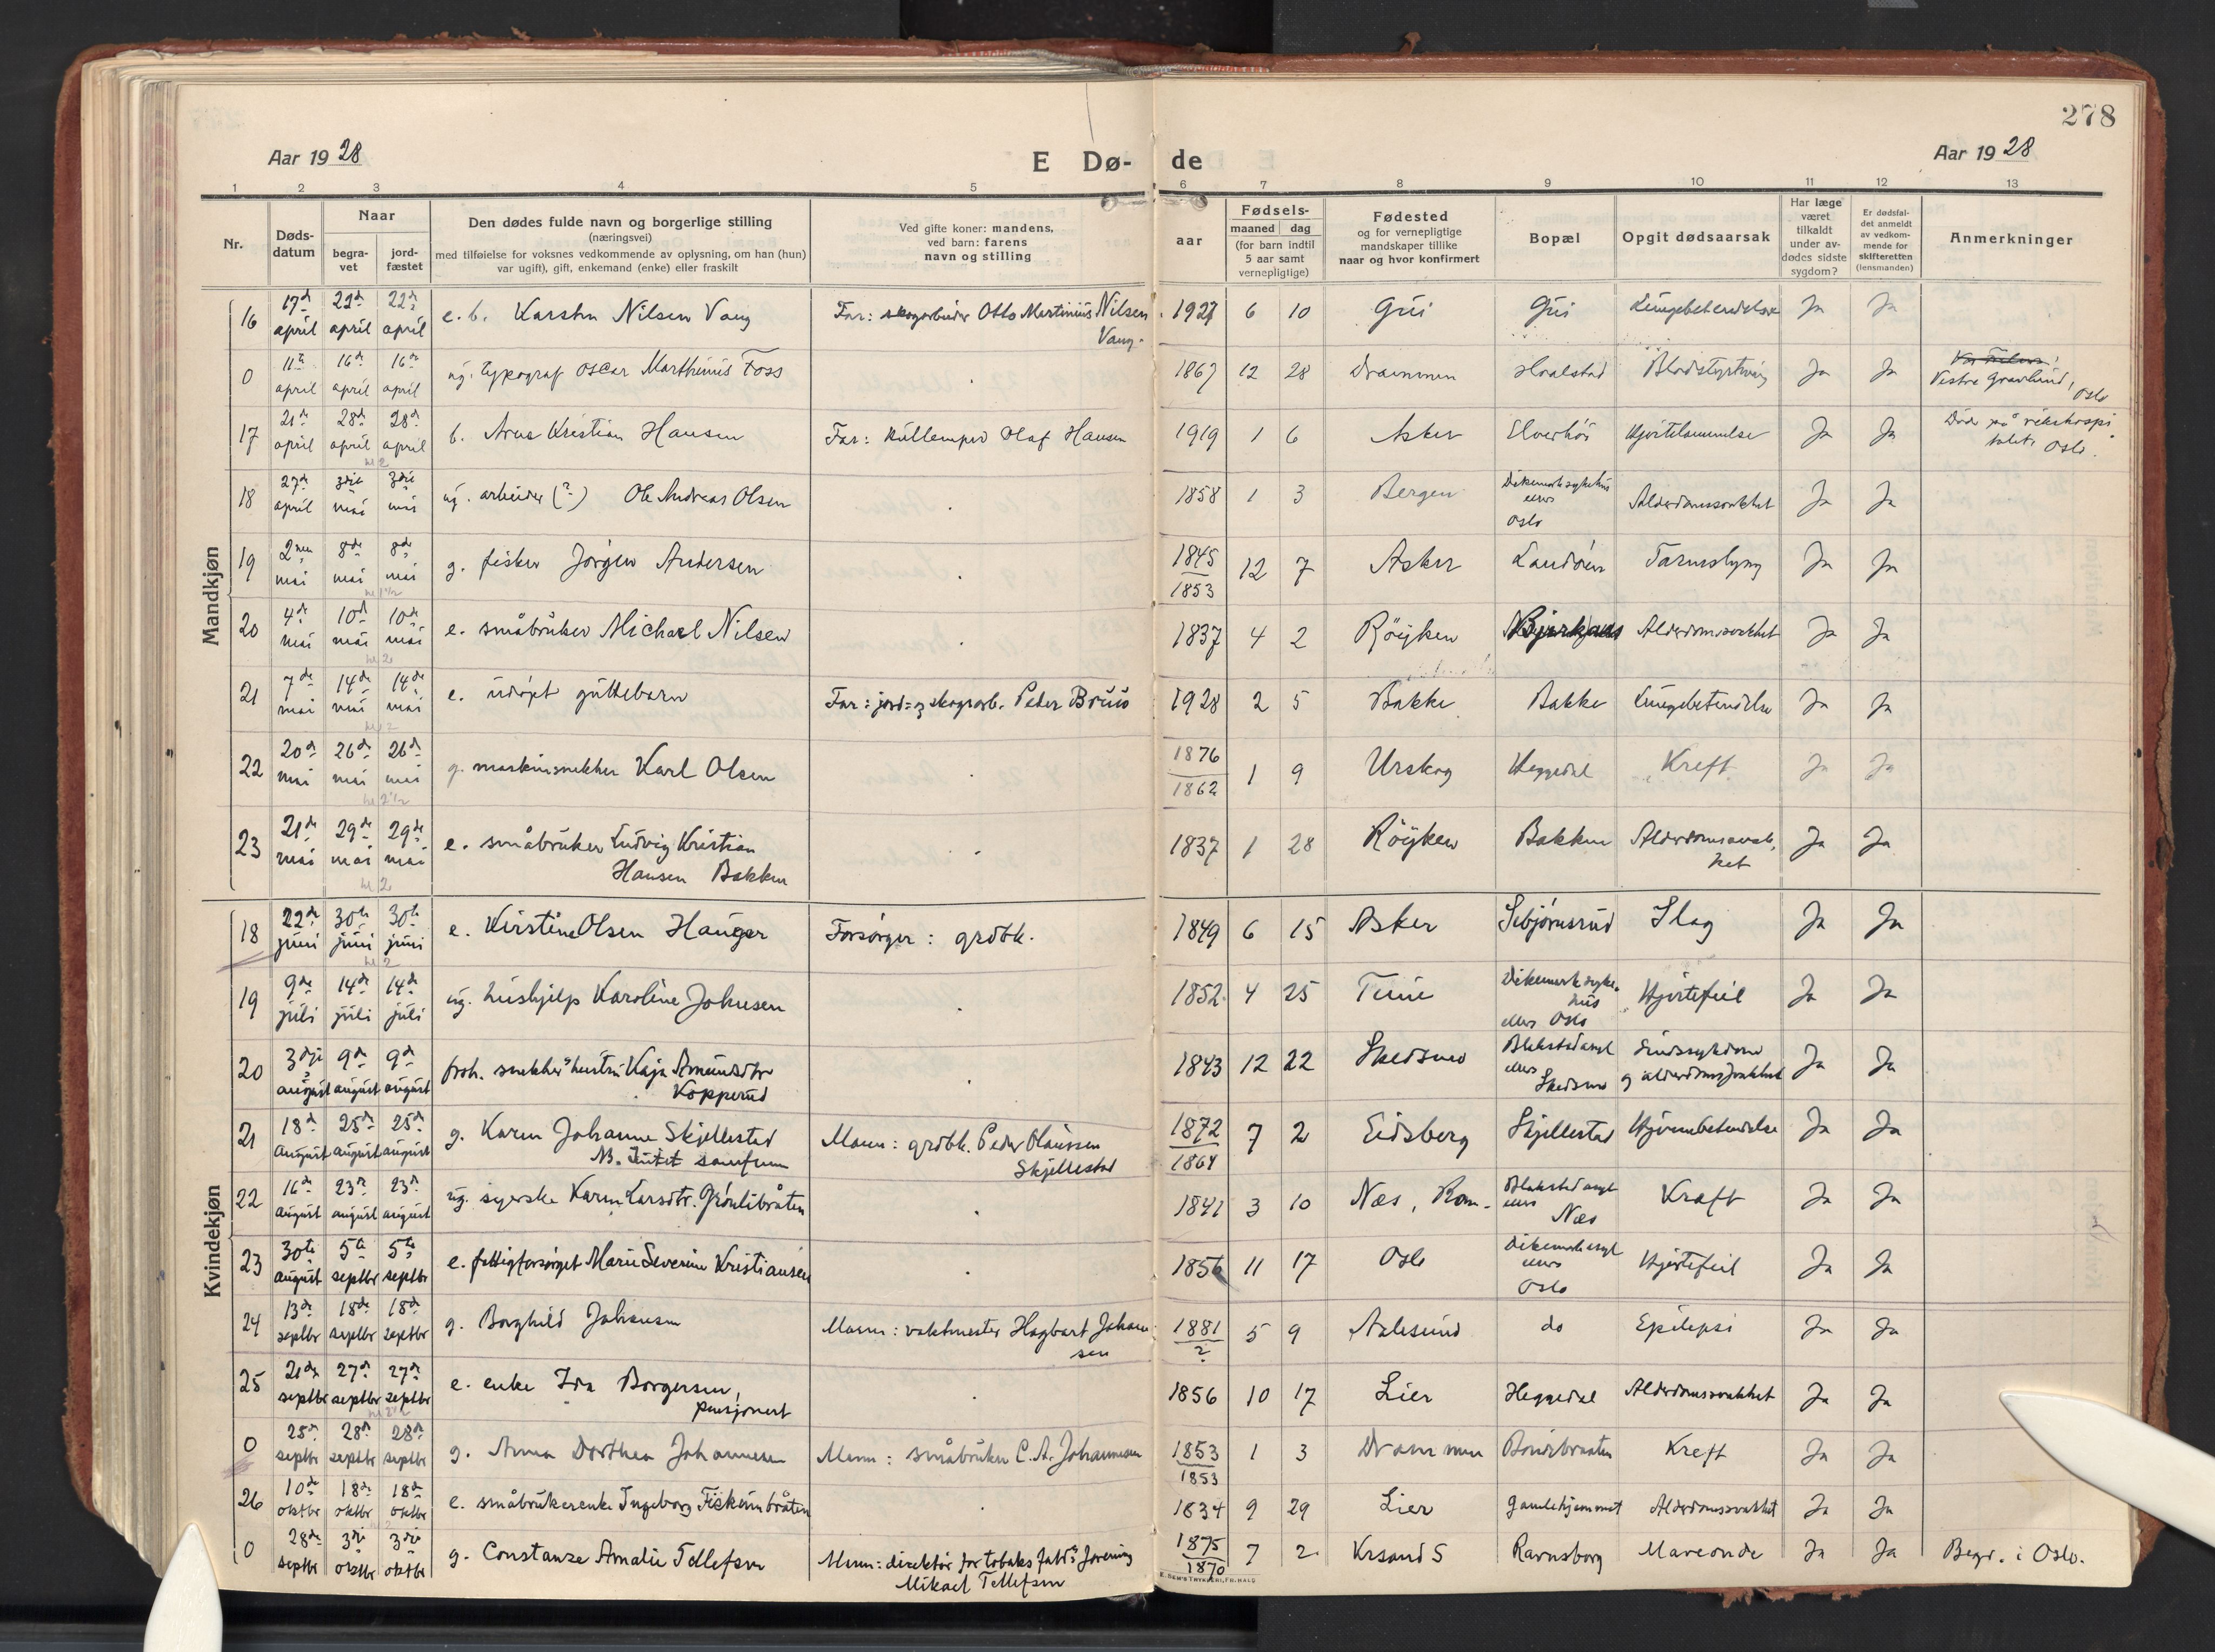 278
Aar 19 28
E Dø-
de
Aar 19 28
1 2 3 4 5 6 7 8 9 10 11 12 13
Nr.
Døds-
datum
Naar
begra-
vet
jord-
fæstet
Den dødes fulde navn og borgerlige stilling
(næringsvei)
med tilføielse for voksnes vedkommende av oplysning, om han (hun)
var ugift), gift, enkemand (enke) eller fraskilt
Ved gifte koner: mandens,
ved barn: farens
navn og stilling
aar
Fødsels-
maaned dag
(for barn indtil
5 aar samt
vernepligtige)
Fødested
og for vernepligtige
mandskaper tillike
naar og hvor konfirmert
Bopæl
Opgit dødsaarsak
Har læge
været
tilkaldt
under av-
dødes sidste
sygdom?
Er dødsfal-
det anmeldt
av vedkom-
mende for
skifteretten
(lensmanden)
Anmerkninger
Mandkjøn
16 17de april 22de april 22de april e. b. Karsten Nilsen Vang Far: skogarbeider Otto Martinius Nilsen Vang. 1927 6 10 Gui Gui Lungebetendelse Ja Ja
0 11te april 16de april 16de april ug. typograf Oscar Marthinius Foss 1867 12 28 Drammen Hvalstad Blodstyrtning Ja Ja
Vestre gravlund, Oslo
17 21de april 28de april 28de april b. Arne Kristian Hansen Far: kullemper Olaf Hansen 1919 1 6 Asker Elverhöi Hjertelammelse Ja Ja Död på rikshospi
talet, Oslo.
hl 2
18 27de april 3die mai 3die mai ug. arbeider (?) Ole Andreas Olsen 1858 1 3 Bergen Dikemark sykehus
ellers
Oslo Alderdomssvakhet Ja Ja
19 2nen mai 8de mai 8de mai g. fisker Jörgen Andersen 1845
1853 12 7 Asker Landöen Tarmslyng Ja Ja
hl 1 1/2
20 4de mai 10de mai 10de mai e. småbruker Michael Nilsen 1837 4 2 Röyken Bjerkaas Alderdomssvakhet Ja Ja
hl 2
21 7de mai 14de mai 14de mai e. udöpt guttebarn Far: jord= og skogsarb. Peder Bruio 1928 2 5 Bakke Bakke Lungebetendelse Ja Ja
22 20de mai 26de mai 26de mai g. maskinsnekker Karl Olsen 1876
1862 1 9 Urskog Heggedal Kreft Ja Ja
hl 2 1/2
23 21de mai 29de mai 29de mai e. småbruker Ludvig Kristian
Hansen Bakken 1837 1 28 Röyken Bakken Alderdomssvak-
het Ja Ja
hl 2
Kvindekjøn
18 22de juni 30te juni 30te juni e. Kirstine Olsen Hauger Forsörger: grdbk. 1849 6 15 Asker Sebjörnsrud Slag Ja Ja
hl 2
19 9de juli 14de juli 14de juli ug. hushjelp Karoline Johnsen 1852 4 25 Tune Dikemark syke-
hus
ellers Oslo Hjertefeil Ja Ja
20 3dje august 9de august 9de august frsh. snekkers hustru Kaja Amundsdtr
Kopperud 1843 12 22 Skedsmo Blakstad asyl
ellers
Skedsmo Sindssykdom
og alderdomssvakhet Ja Ja
21 18de august 25de august 25de august g. Karen Johanne Skjellestad
Mann: grdbk. Peder Olaussen
Skjellestad 1872
1864 7 2 Eidsberg Skjellestad Hjernebetendelse Ja Ja
22 16de august 23de august 23de august ug. syerske Karen Larsdtr. Grönlibråten 1841 3 10 Næs, Rom. Blakstad asyl
ellers
Næs Kræft Ja Ja
23 30te august 5te septbr 5te septbr e. fattigforsörget Marie Severine Kristiansen 1856 11 17 Oslo Dikemark asyl
ellers
Oslo Hjertefeil Ja Ja
24 13de septbr 18de septbr 18de septbr g. Borghild Johansen Mann: vaktmester Hagbart Johan-
sen 1881
? 5 9 Aalesund do Epilepsi Ja Ja
25 21de septbr 27de septbr 27de septbr e. enke Ida Borgersen,
pensjonert 1856 10 17 Lier Heggedal Alderdomssvakhet Ja Ja
0 25de septbr 28de septbr 28de septbr g. Anna Dorthea Johannesen Mann: småbruker C. A. Johannesen 1853
1853 1 3 Drammen Bondibraaten Kreft Ja Ja
26 10de oktbr 18de oktbr 18de oktbr e. småbrukerenke Ingeborg Fiskumbråten 1834 9 29 Lier Gamlehjemmet Alderdomssvakhet Ja Ja
0 28de septbr 3die oktbr 3die oktbr g. Constanze Amalie Tellefsen Mann: direktör for tobaksfabr.s forening
Mikael Tellefsen 1875
1870 7 2 Krsand S Ravnsborg Maveonde Ja Ja Begr. i Oslo.